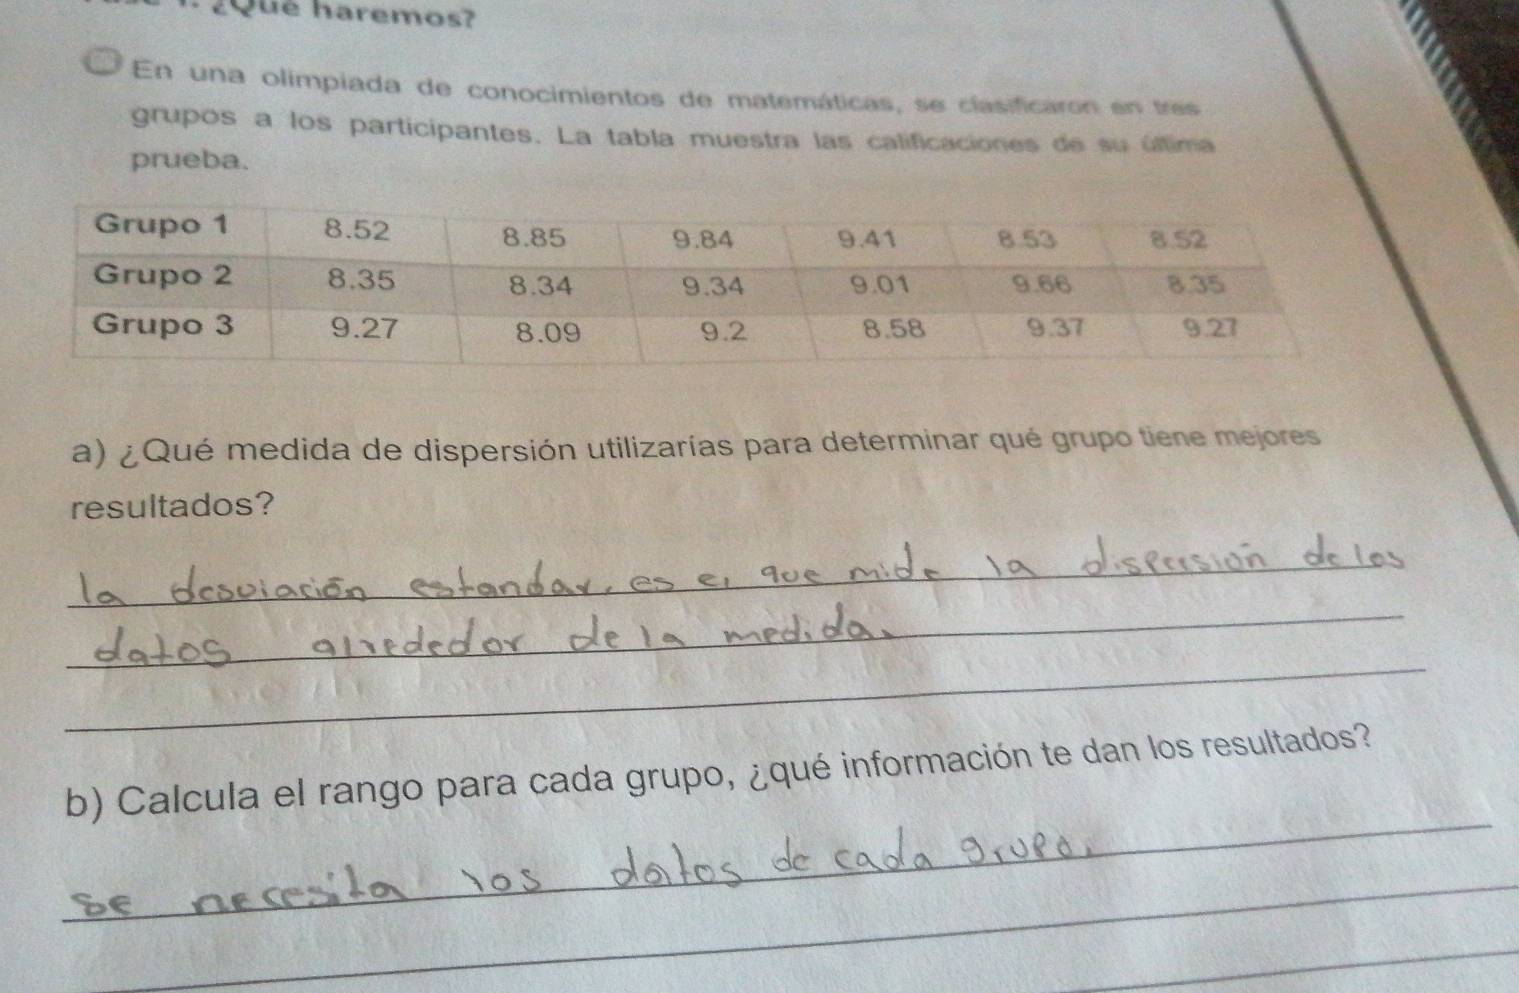 ¿Qué haremos?
En una olimpiada de conocimientos de matemáticas, se clasificaron en tres
grupos a los participantes. La tabla muestra las calificaciones de su última
prueba.
Grupo 1 8.52 8.85 9.84 9.41 8.53 8.52
Grupo 2 8.35 8.34 9.34 9.01 9.66 8.35
Grupo 3 9.27 8.09 9.2 8.58 9.37 9.27
a) ¿Qué medida de dispersión utilizarías para determinar qué grupo tiene mejores
resultados?
la desviación estandar, es el que mide la dispersión de los
datos alrededor de la medida.
b) Calcula el rango para cada grupo, ¿qué información te dan los resultados?
se necesita los datos de cada grupo.